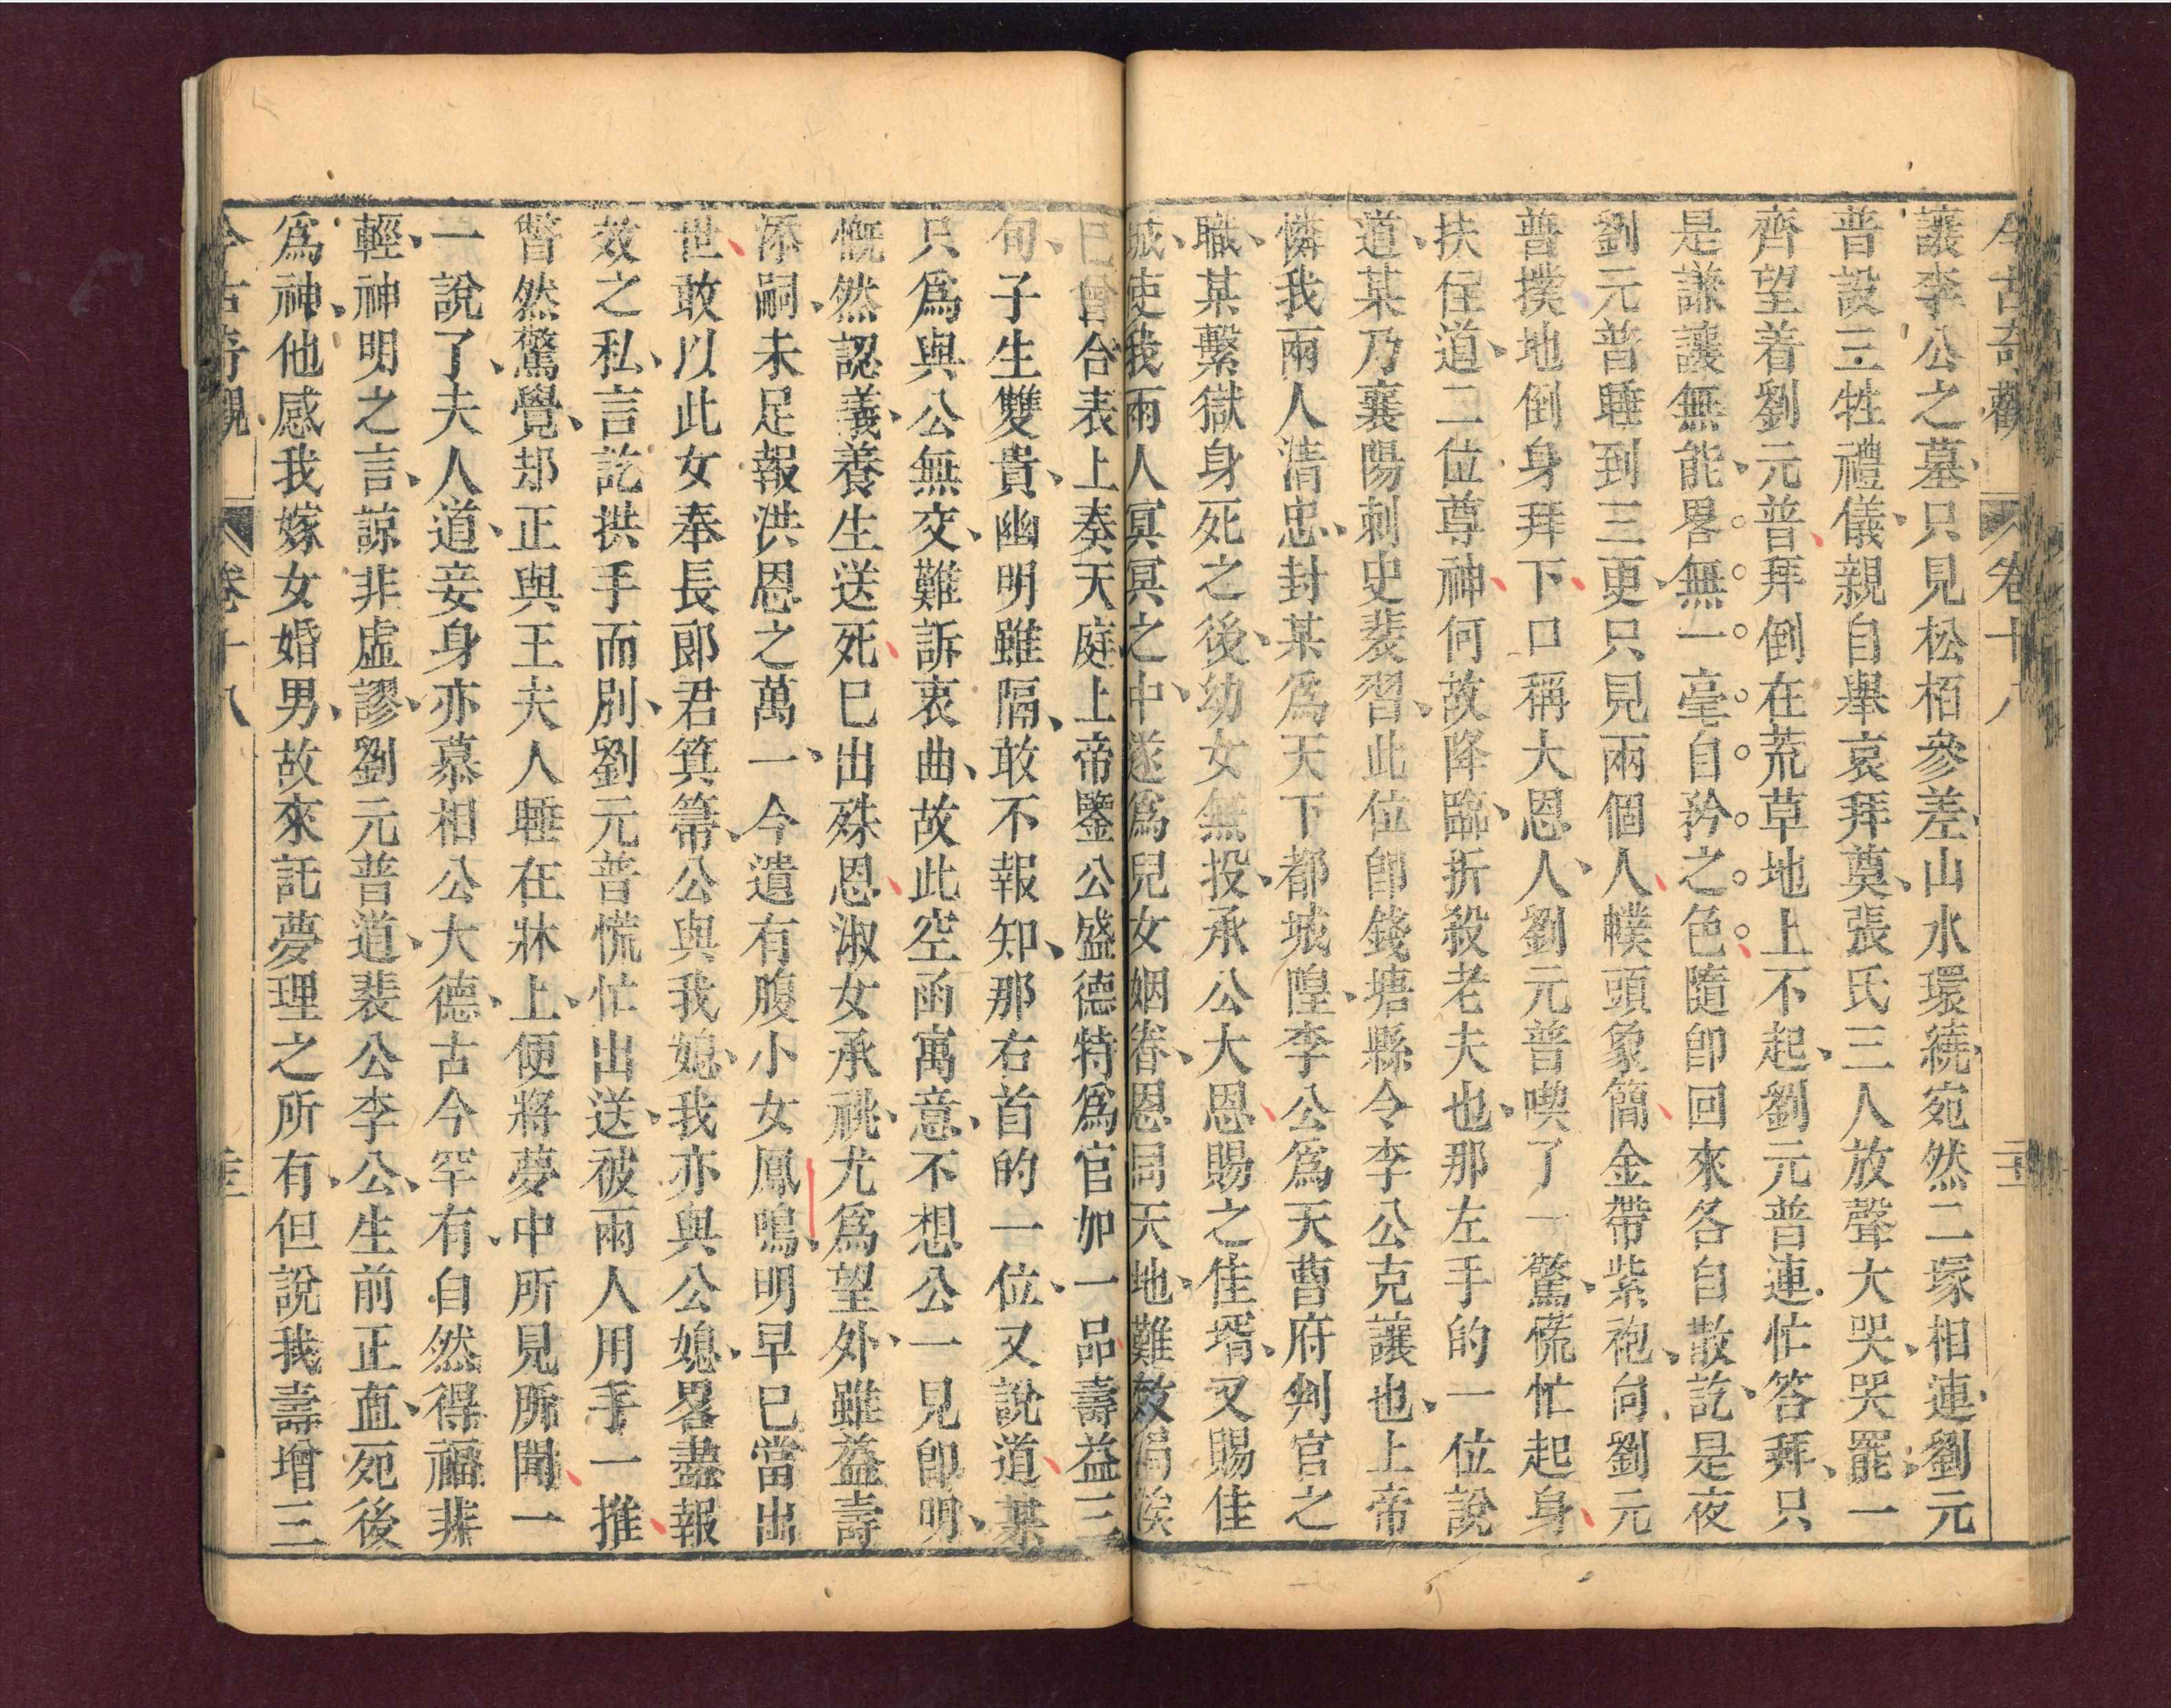 今古奇觀 卷十八
讓李公之墓、只見松栢參差、山水環繞、宛然二塚相連、劉元
普設三牲禮儀、親自舉哀拜奠、張氏三人放聲大哭、哭罷、一
齊望着劉元普、拜倒在荒草地上不起、劉元普連忙答拜、只
是謙讓無能、畧無一毫自矜之色、隨卽回來各自散訖、是夜
劉元普睡到三更、只見兩個人、幞頭象簡、金帶紫袍、向劉元
普撲地倒身拜下、口稱大恩人、劉元普喫了一驚、慌忙起身、
扶住道、二位尊神、何故降臨、折殺老夫也、那左手的一位說
道、某乃襄陽刺史裴習、此位卽錢塘縣令李公克讓也、上帝
憐我兩人清忠、封某爲天下都城隍、李公爲天曹府判官之
職、某繫獄身死之後、幼女無投、承公大恩、賜之佳壻、又賜佳
城、使我兩人冥冥之中、遂爲兒女姻眷、恩同天地、難效涓涘
已曾合表上奏天庭、上帝鑒公盛德、特爲官加一品、壽益三
旬、子生雙貴、幽明雖隔、敢不報知、那右首的一位、又說道、某
只爲與公無交、難訴衷曲、故此空函寓意、不想公一見卽明、
慨然認義、養生送死、已出殊恩、淑女承祧、尤爲望外、雖益壽
添嗣、未足報洪恩之萬一、今遺有腹小女鳳鳴、明早已當出
世、敢以此女奉長郎君箕箒、公與我媳、我亦與公媳、畧盡報
效之私、言訖拱手而別、劉元普慌忙出送、被兩人用手一推、
瞥然驚覺、却正與王夫人睡在牀上、便將夢中所見所聞、一
一說了、夫人道、妾身亦慕相公大德、古今罕有、自然得福非
輕、神明之言、諒非虛謬、劉元普道、裴公李公、生前正直、死後
爲神、他感我嫁女婚男、故來託夢、理之所有、但說我壽增三
今古奇觀 卷十八